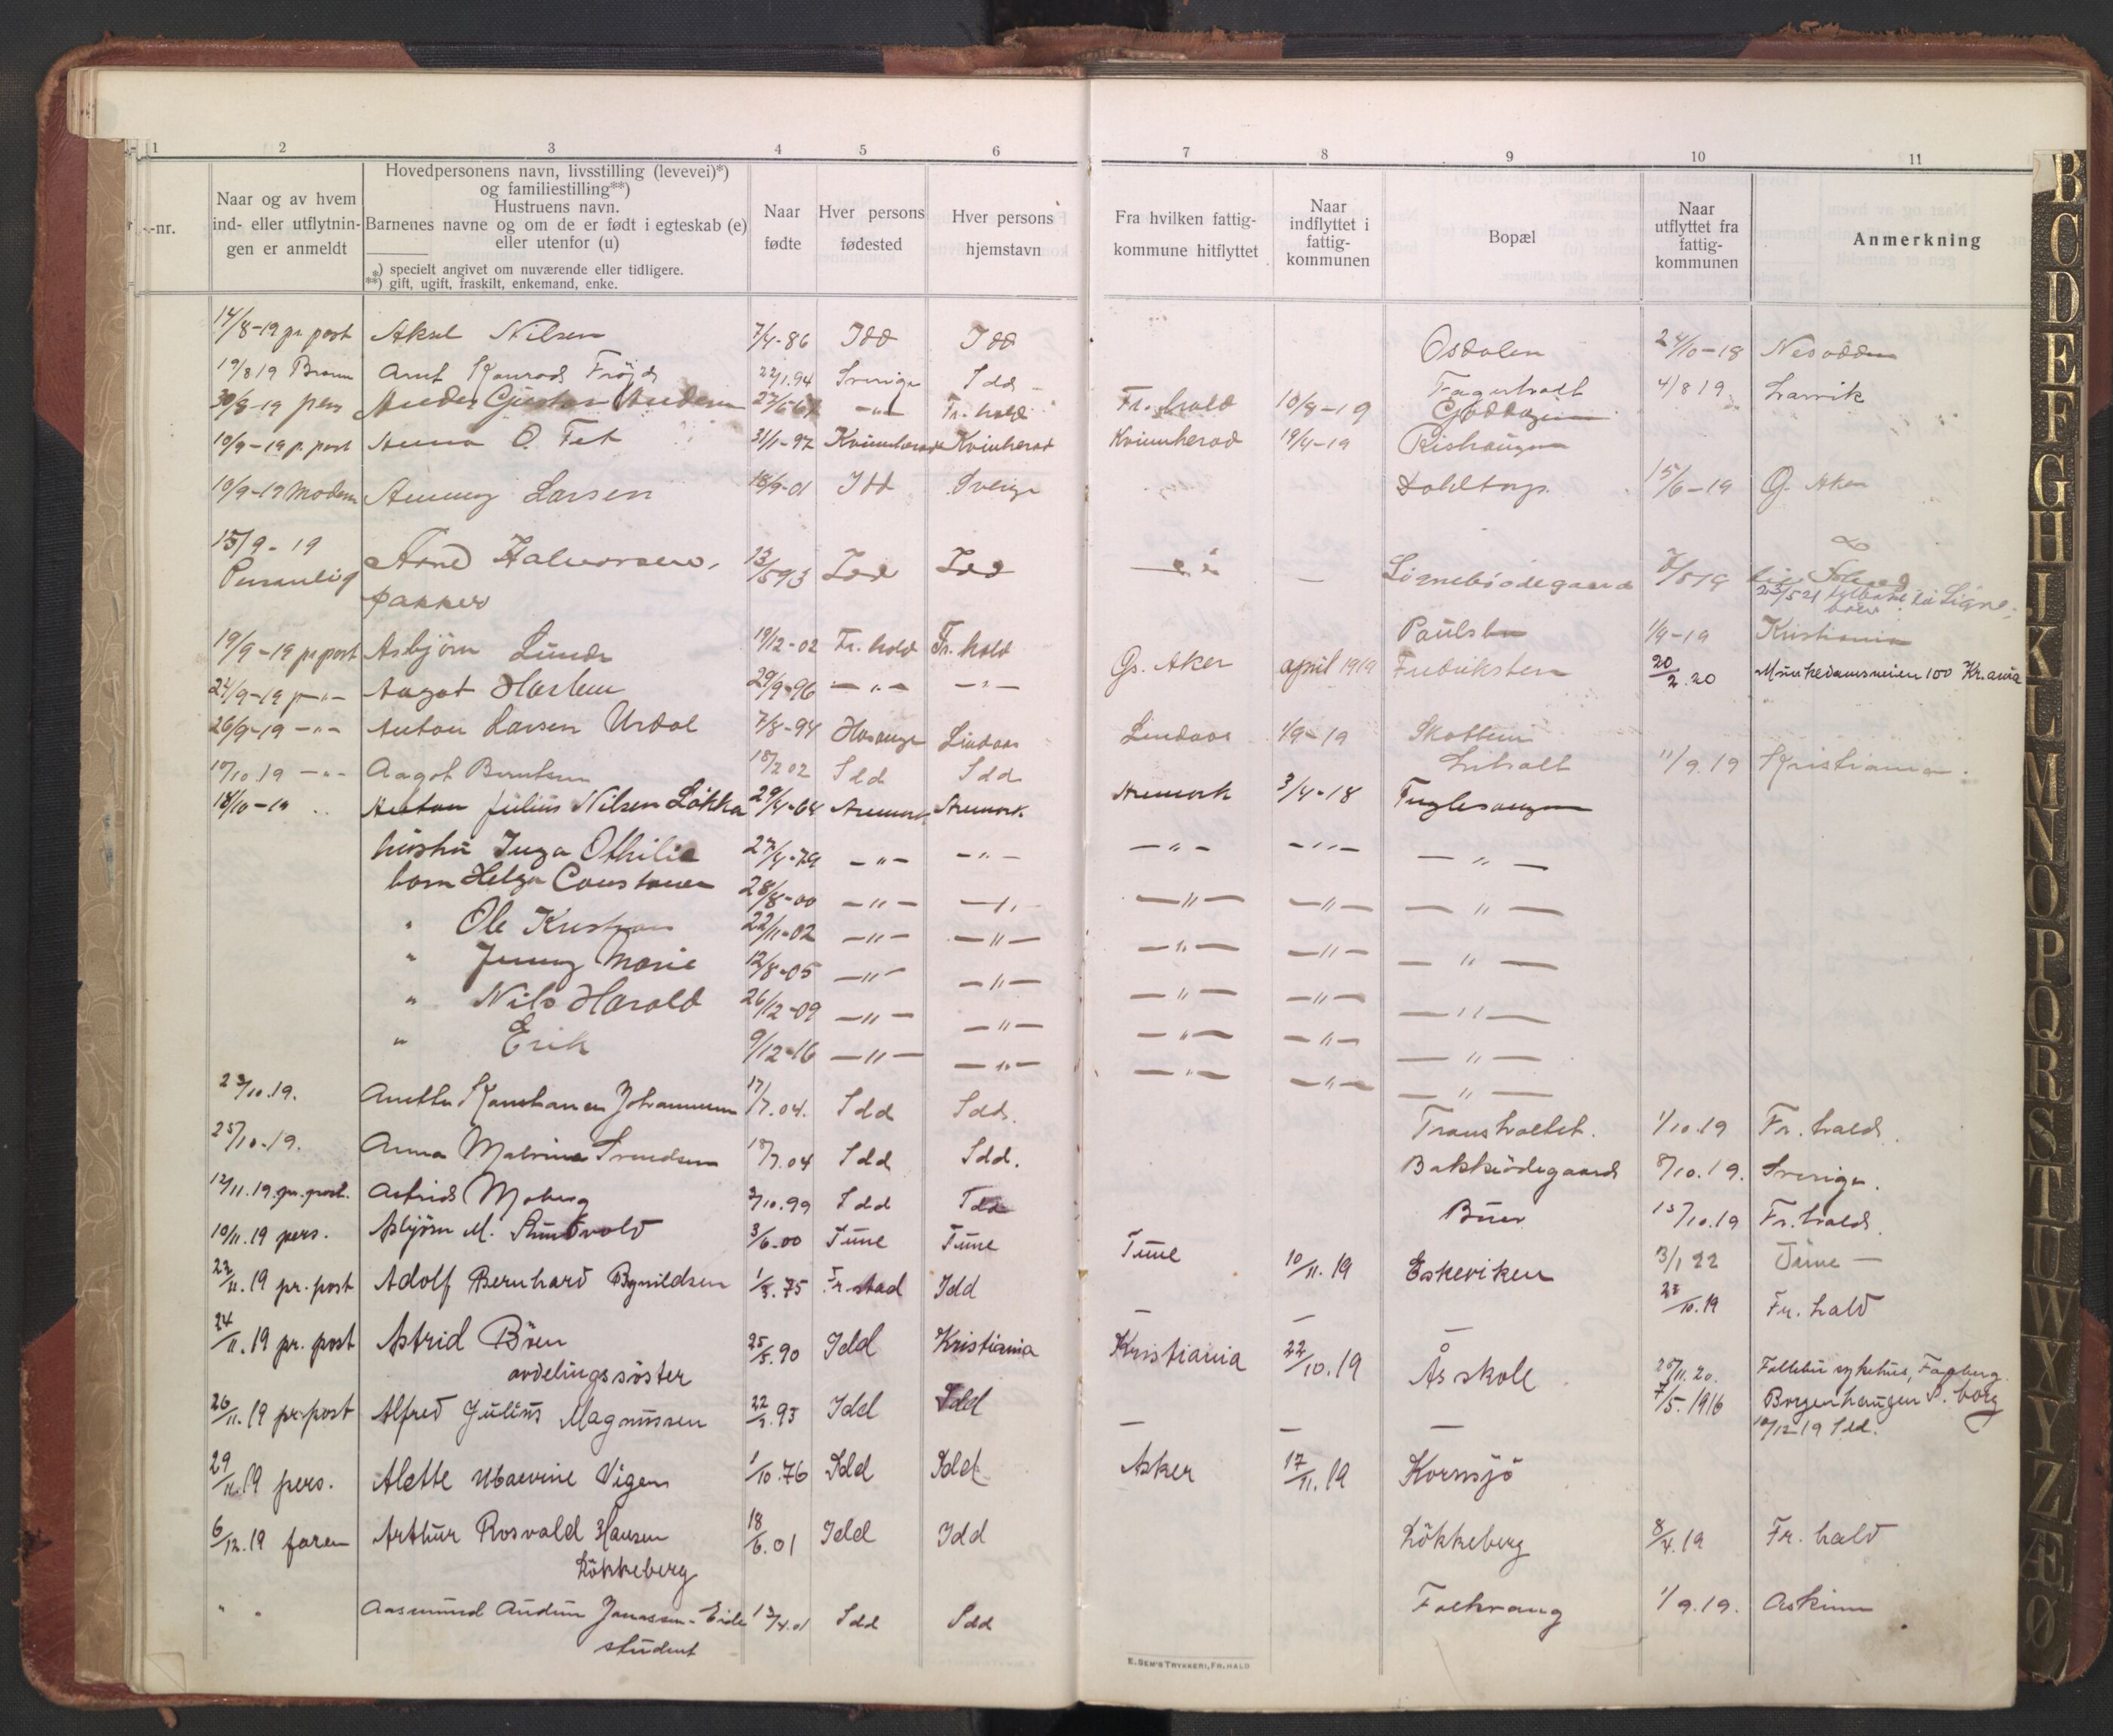 1 2 3 4 5 6 7 8 9 10 11
-nr.
Naar og av hvem
ind- eller utflytnin-
gen er anmeldt
Hovedpersonens navn, livsstilling (levevei)*)
og familiestilling**)
Hustruens navn.
Barnenes navne og om de er født i egteskab (e)
eller utenfor (u)
*) specielt angivet om nuværende eller tidligere.
**) gift, ugift, fraskilt, enkemand, enke.
Naar
fødte
Hver persons
fødested
Hver persons
hjemstavn
Fra hvilken fattig-
kommune hitflyttet
Naar
indflyttet i
fattig-
kommunen
Bopæl
Naar
utflyttet fra
fattig-
kommunen
Anmerkning
14/8-19 pr. post Aksel Nilsen 7/4-86 Idd Idd Osdalen 24/10-18 Nesodden
19/8 19 Arnt Konrad Fröjd 22/1.94 Sverige Idd Fagerholt 4/8 19 Larvik
30/8-19 pers Anders Gustav Andersen -"- Fr. hald Fr. hald 10/8-19
10/9-19 p. post Anna O. Fet 31/1-97 Kvinnherad Kvinherad Kvinnherad 19/4-19 Rishaugen
10/9-19 Modern Aenny Larsen 18/9-01 Idd Sverige 15/6-19 G. Aker
15/9-19
Personlig Arne Halvorsen, 13/5 93 Idd Idd — Lörnebödegaard
pakker 23/5 21
19/9-19 pr post Asbjörn Lunde 19/12-02 Fr. hald Fr. hald Paulsbo 1/9-19 Kristiania
24/9-19 p -"- Aagot Harlem 29/9-96 -"- -"- Gs. Aker april 1919 Fredriksten 20/2.20 Munkedamsveien 100 Kr.ania
26/9-19 -"- Anton Larsen Urdal 7/8-94 Hosanger Lindaas Lindaas 1/9-19 Skotteni
17/10.19 -"- Aagot Berntsen 18/2 02 Idd Idd Liholt 11/9.19 Kristiania.
18/10-19 " Anton Julius Nilsen Løkka 29/4-64 Aremark Aremark Aremark 3/4-18 Fuglesangen
hustru Inga Othilie 27/4-79 -"- -"- -"- -"- -"-
barn Helga Constance 28/8-00 -"- -"- -"- -"- -"-
" Ole Kristian 22/11-02 -"- -"- -"- -"- -"-
" Jenny Marie 12/8-05 -"- -"- -"- -"- -"-
" Nils Harald 26/12-09 -"- -"- -"- -"- -"-
" Erik 9/12-16 -"- -"- -"- -"- -"-
23/10.19. Anette Konstanse Johannesen 17/7.04. Idd Idd. Transholtet. 1/10.19 Fr. hald.
25/10.19. Anna Malvina Svendsen 18/7.04 Idd Idd. Bakkeödegaard 8/10.19. Sverige.
12/11.19 pr. post. Astrid Moberg 2/10.99 Idd Idd Buer 15/10.19 Fr. hald.
10/11.19 pers. Asbjörn M. Sundvold 3/6.00 Tune Tune Tune 10/11.19 Eskeviken 3/1 22 Tune —
22/11.19 pr. post Adolf Bernhard Bynildsen 1/3.75 Fr. stad Idd — — — 23/10.19 Fr. hald
24/11.19 pr. post Astrid Böen 25/5.90 Idd Kristiania Kristiania 22/10.19 Ås skole 25/11.20. sykehus, Fagberg.
avdelingssöster
26/11.19 pr. post Alfred Julius Magnussen 22/2.93 Idd Idd — — — 7/5.1916 Borgenhaugen S. borg
10/12 19 Idd.
29/11.19 pers. Alette Maevine Vigen 1/10.76 Idd Idd Asker 17/11.19 Kornsjö
6/12.19 faren Arthur Rosvald Hansen 18/6.01 Idd Idd Lökkeberg 8/4.19 Fr. hald
Lökkeberg
" " Aasmund Audun Jonassen-Eide 12/4.01 Idd Idd Folkvang 1/9.19. Askim
student
E. SEM'S TRYKKERI, FR.HALD
B
C
D
E
F
G
H
J
K
L
M
N
O
P
Q
R
S
T
U
W
X
Y
Z
Æ
Ø